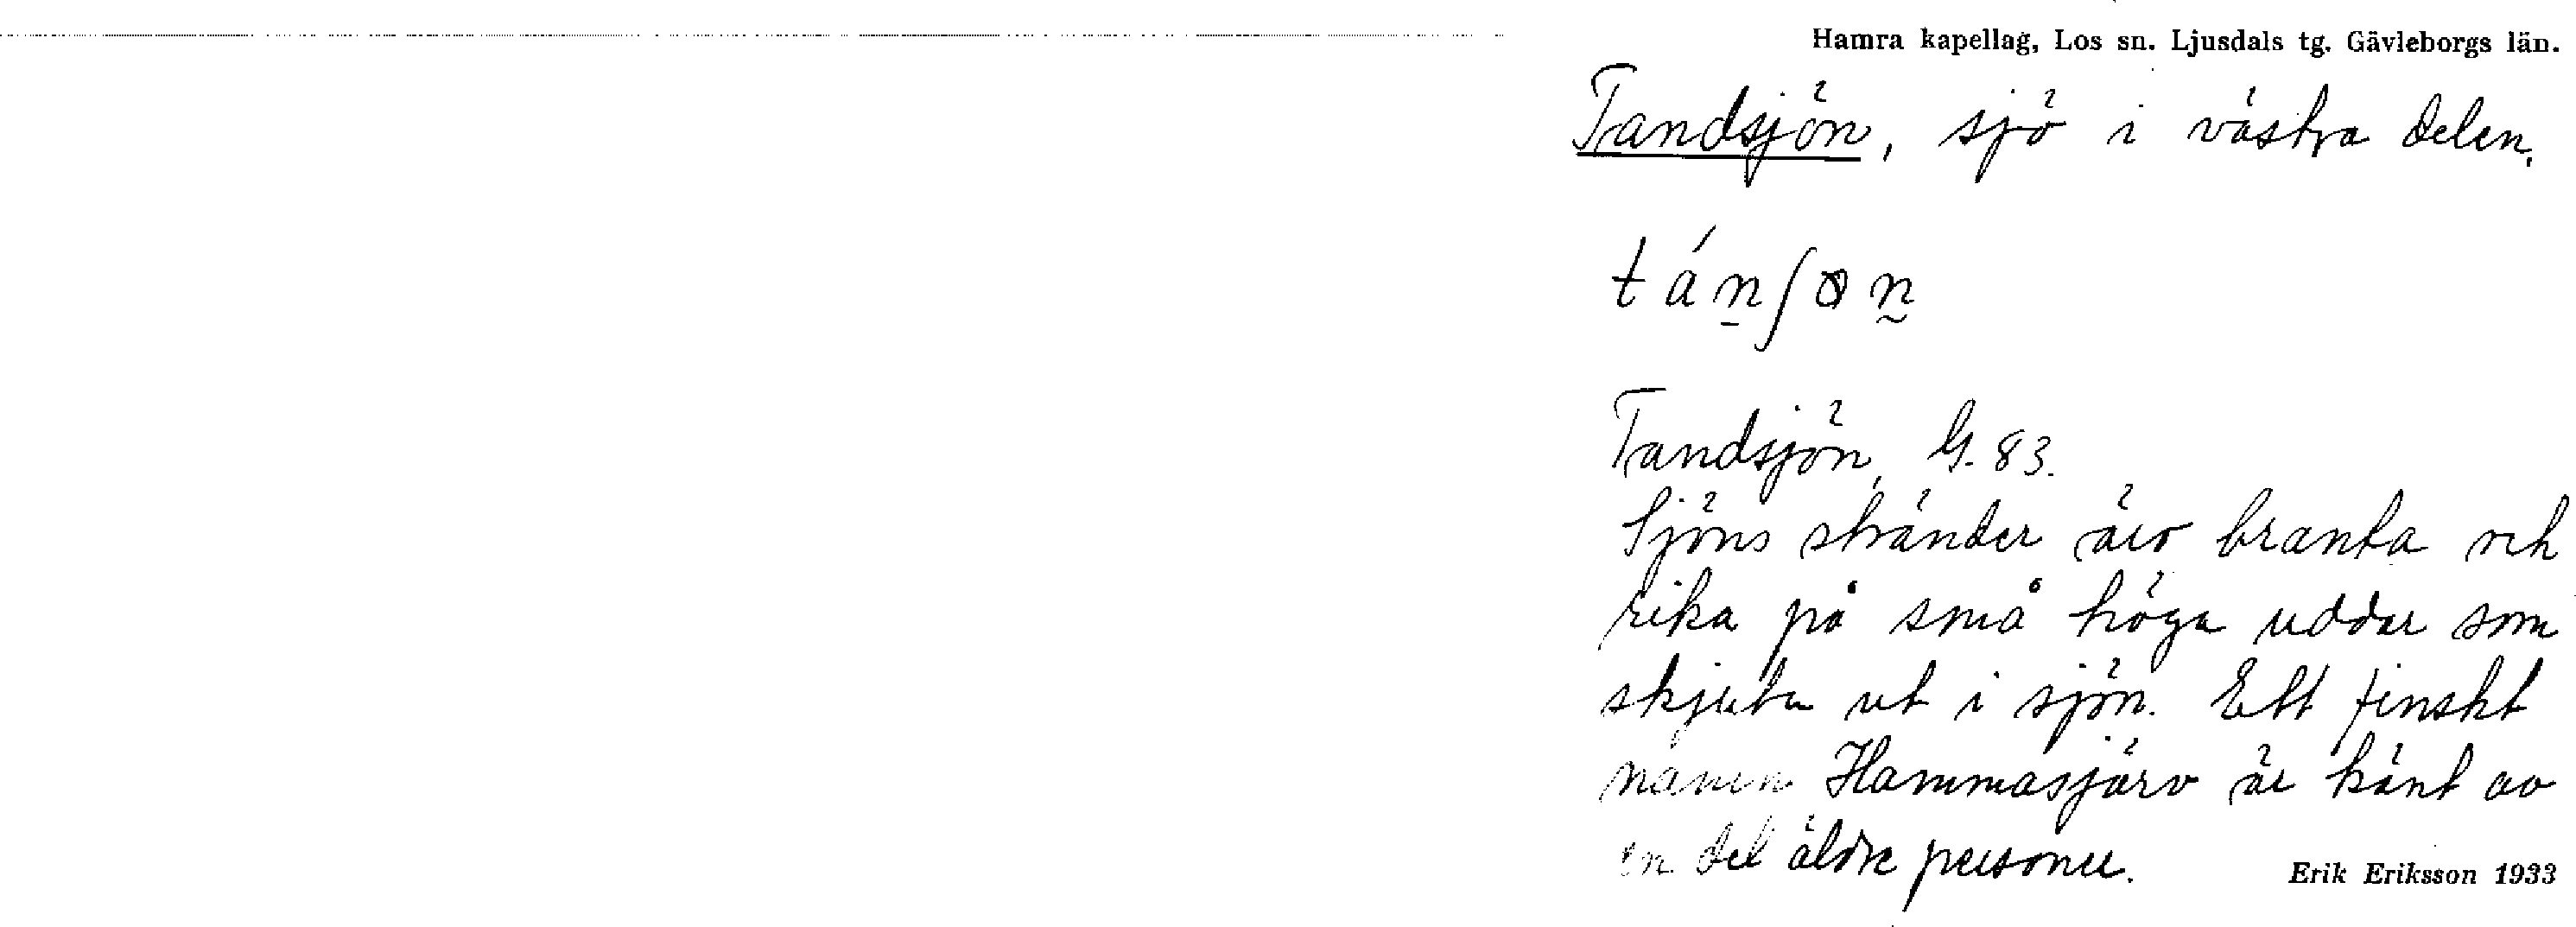 Hamra kapellag, Los sn. Ljusdals tg. Gävleborgs län.
Tandsjön, sjö i västra delen.
tánʃon
Tandsjön, G. 83.
Sjöns stränder äro branta och
rika på små höga uddar som
skjuta ut i sjön. Ett finskt
namn Hammasjärv är känt av
en del äldre personer.
Erik Eriksson 1933